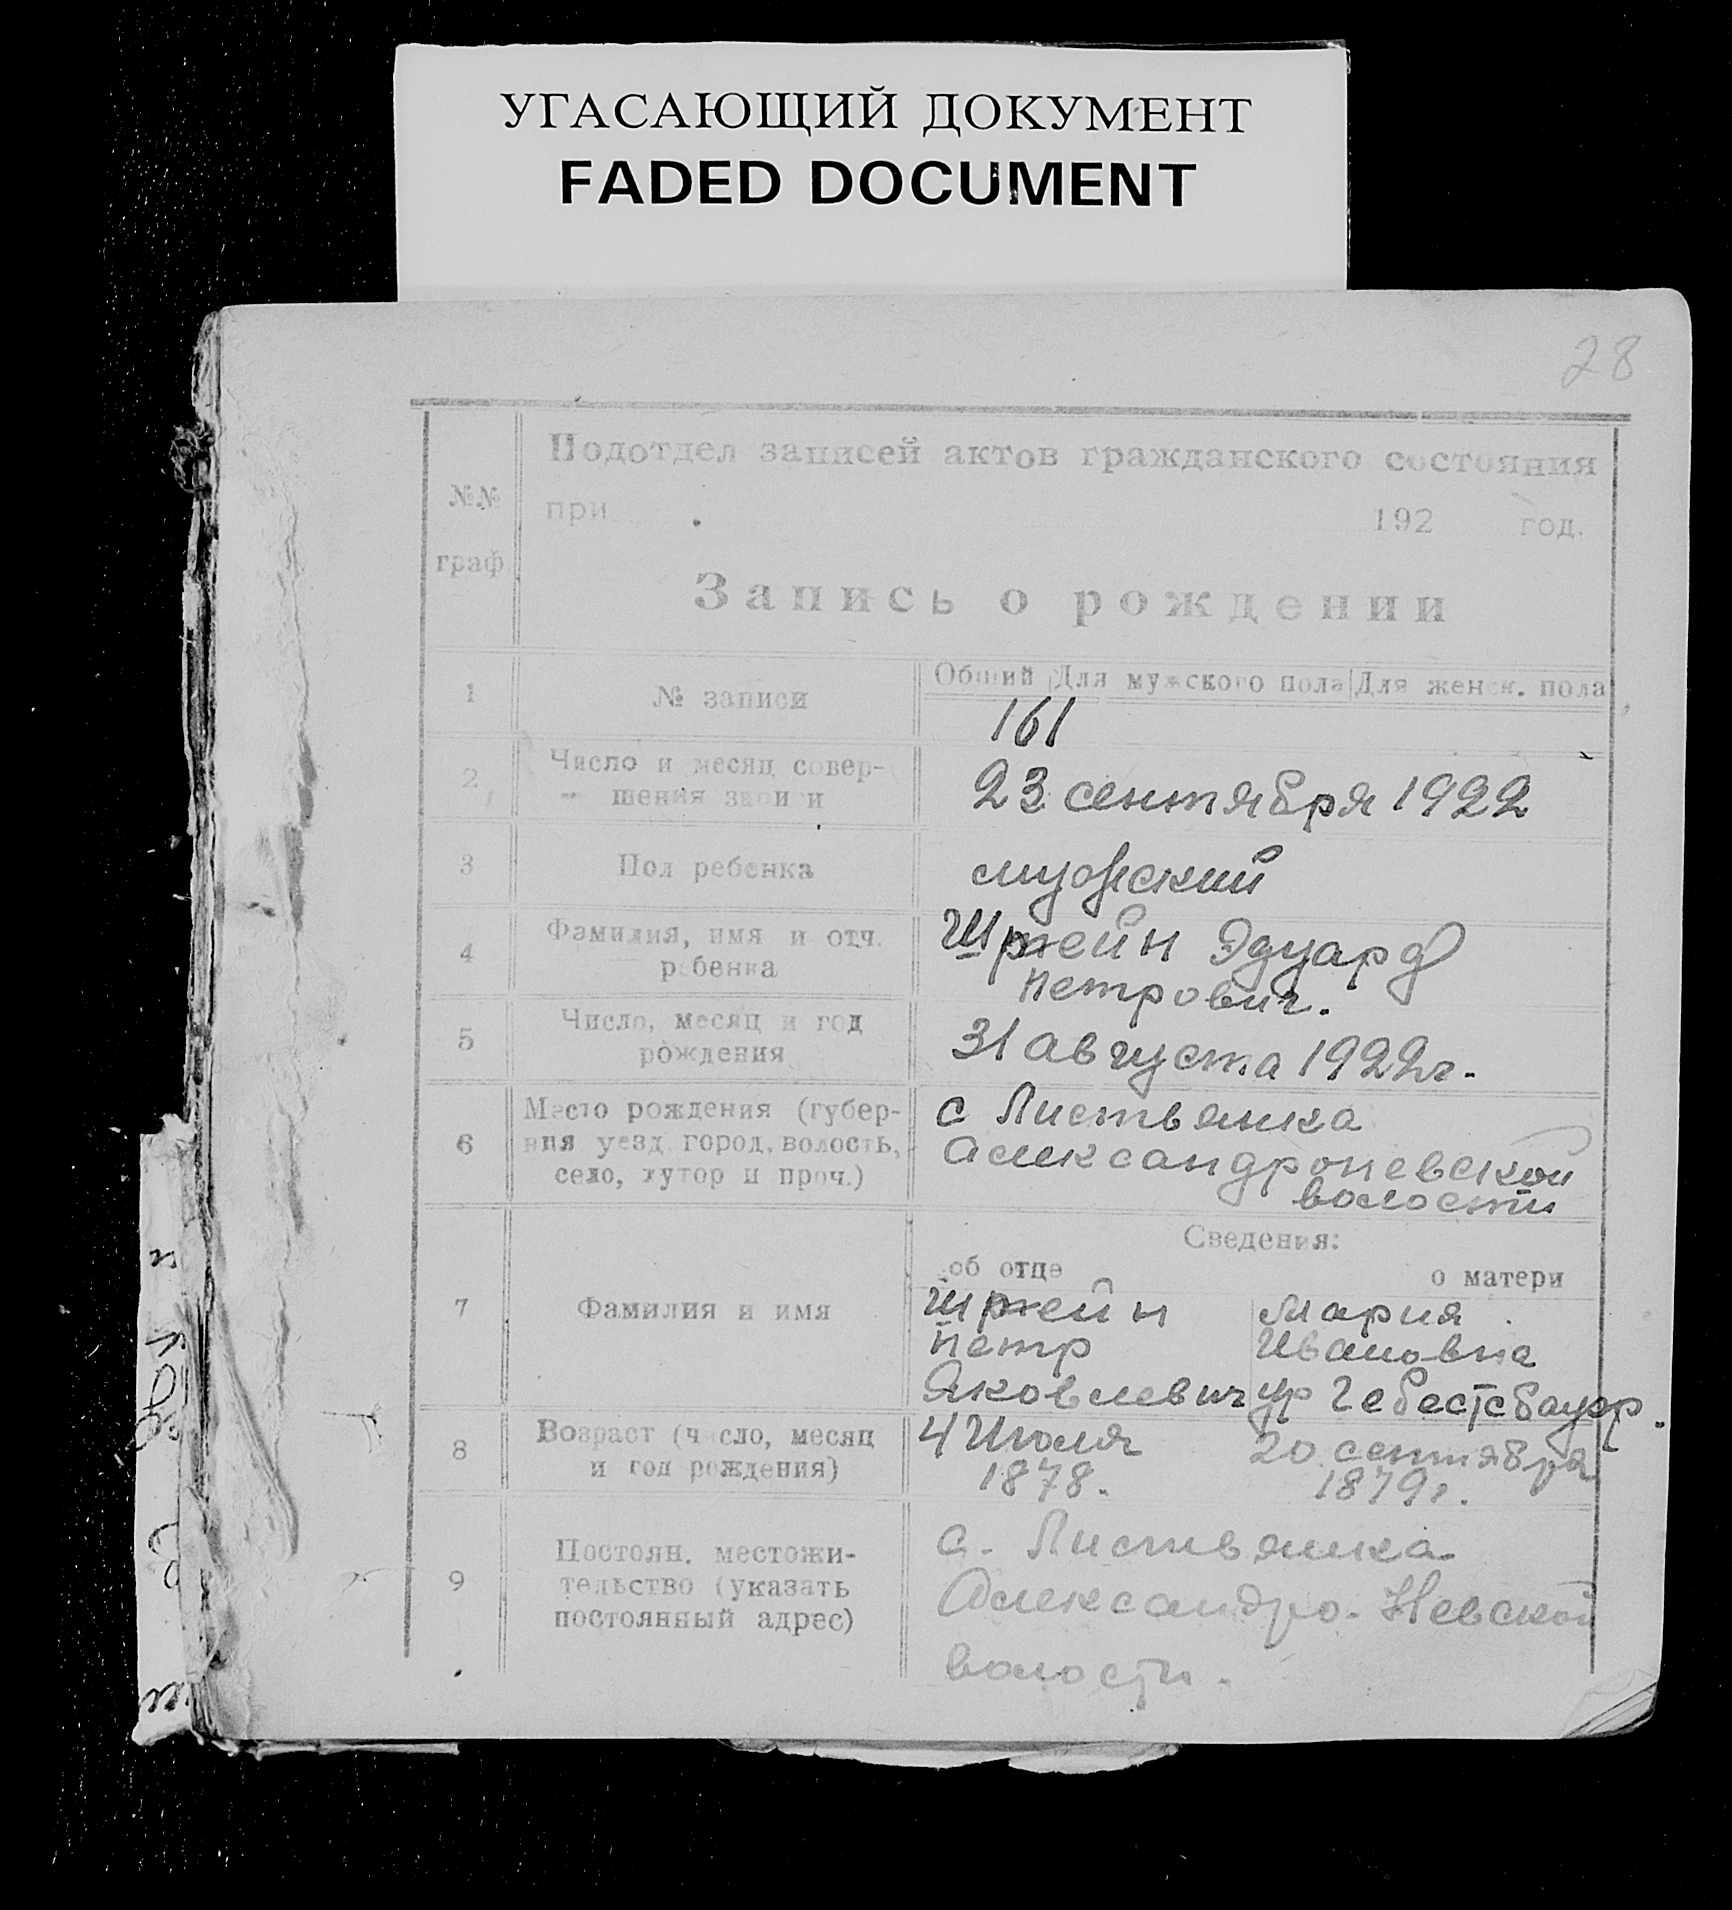 УГАСАЮЩИЙ ДОКУМЕНТ
FADED DOCUMENT
28
№№
граф
Подотдел записей актов гражданского состояния
при 192 год.
Запись о рождении
1 № записи
Общий Для мужского пола Для женск. пола
161
2 Число и месяц совер-
шения записи
23 сентября 1922
3 Пол ребенка
мужский
4 Фамилия, имя и отч.
ребенка
Эдуард
Петрович.
5 Число, месяц и год
рождения
31 августа 1922г.
6 Место рождения (губер-
ния уезд, город, волость,
село, хутор и проч.)
с Листвянка
Александроневской
волости
Сведения:
об отце о матери
7 Фамилия и имя
Мария
Петр Ивановна
Яковлевич ур Гебестсбауер.
8 Возраст (число, месяц
и год рождения)
4 Июля 20 сентября
1878. 1879г.
9 Постоян. местожи-
тельство (указать
постоянный адрес)
с. Листвянка
Александро-Невской
волости.